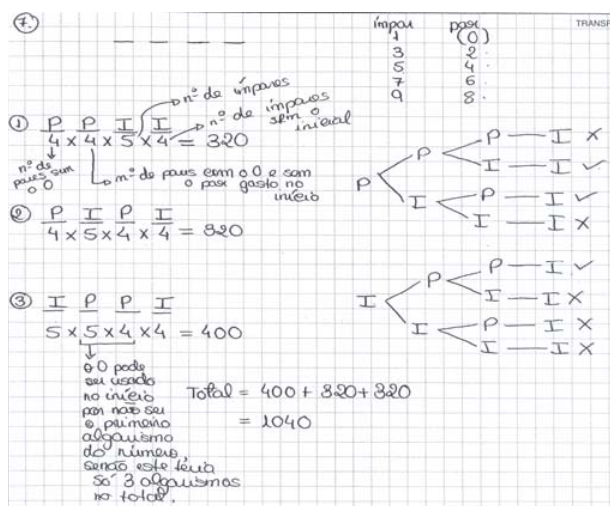 7.
ímpar par TRANSF
1 (0)
3 2.
5 4.
7 6.
9 8.
① P P I I
4 x 4 x 5 x 4 = 320
nº de ímpares
nº de ímpares sem o inicial
nº de pares sem o 0
nº de pares com o 0 e sem
o par gasto no
início
② P I P I
4 x 5 x 4 x 4 = 320
③ I P P I
5 x 5 x 4 x 4 = 400
o 0 pode
ser usado
no início
por não ser
o primeiro
algarismo
do número,
senão este teria
só 3 algarismos
no total.
Total = 400 + 320 + 320
= 1040
P
P
P — I X
I — I ✓
I
P — I ✓
I — I X
I
P
P — I ✓
I — I X
I
P — I X
I — I X